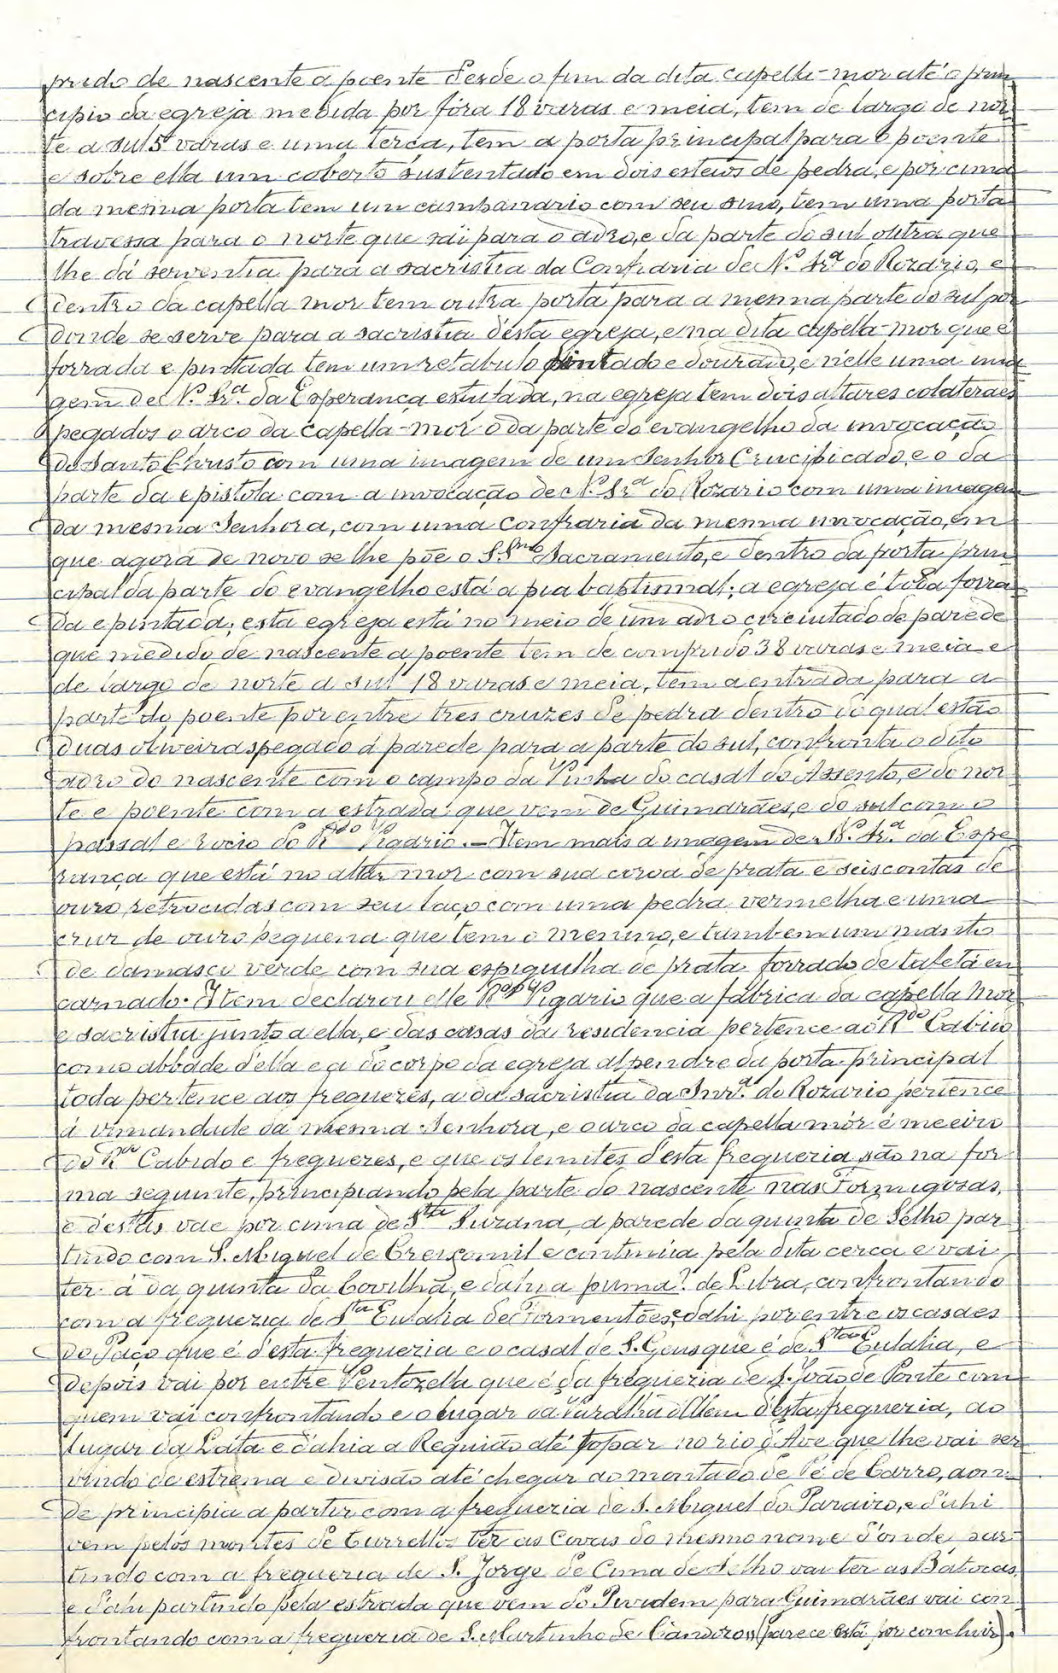 prido de nascente a poente desde o fim da dita capella-mor até o prin
cipio da egreja medida por fóra 18 varas e meia, tem de largo de nor
te a sul 5 varas e uma terça, tem a porta principal para o poente
e sobre ella um coberto sustentado em dois esteios de pedra, e por cima
da mesma porta tem um campanario com seu sino, tem uma porta
travessa para o norte que sai para o adro, e da parte do sul outra que
lhe dá serventia para a sacristia da Confraria de N.ª Sr.ª do Rozario, e
dentro da capella mor tem outra porta para a mesma parte do sul por
donde se serve para a sacristia d'esta egreja, e na dita capella-mor que é
forrada e pintada tem um retabulo pintado e dourado, e n'elle uma ima
gem de N.ª Sr.ª da Esperança estufada, na egreja tem dois altares colateraes
pegados o arco da capella-mor o da parte do evangelho da invocação
do Santo Christo com uma imagem de um Senhor Crucificado, e o da
parte da epistola com a invocação de N.ª Sr.ª do Rozario com uma imagem
da mesma Senhora, com uma confraria da mesma invocação, em
que agora de novo se lhe põe o S.S.mo Sacramento, e dentro da porta prin
cipal da parte do evangelho está a pia baptismal; a egreja é toda forra
da e pintada; esta egreja está no meio de um adro circuitado de parede
que medido de nascente a poente tem de comprido 38 varas e meia e
de largo de norte a sul 18 varas e meia, tem a entrada para a
parte do poente por entre tres cruzes de pedra dentro do qual estão
duas oliveiras pegado á parede para a parte do sul, confronta o dito
adro do nascente com o campo da Vinha do casal do Assento, e do nor
te e poente com a estrada que vem de Guimarães, e do sul com o
passal e rocio do R.do Vigario. — Item mais a imagem de N.ª Sr.ª da Espe
rança que está no altar mor com sua coroa de prata e seis contas de
ouro retrocidas com seu laço com uma pedra vermelha e uma
cruz de ouro pequena que tem o menino, e tambem um manto
de damasco verde com sua espiguilha de prata forrado de tafetá en
carnado. Item declarou elle R.do Vigario que a fabrica da capella mor
e sacristia junto a ella, e das casas da residencia pertence ao R.do Cabido
como abbade d'ella e a do corpo da egreja alpendre da porta principal
toda pertence aos freguezes, a da sacristia da Snr.ª do Rozario pertence
á irmandade da mesma Senhora, e o arco da capella mór é meeiro
do R.do Cabido e freguezes, e que os lemites d'esta freguezia são na for
ma seguinte, principiando pela parte do nascente nas Formigosas,
e d'estas vae por cima de S.ta Suzana, a parede da quinta de Selho par
tindo com S. Miguel de Creixomil e continúa pela dita cerca e vai
ter á da quinta da Covilhã, e dahi a puma? de Lubra, confrontando
com a freguezia de S.ta Eulalia de Fermentões, e dahi por entre os casaes
do Paço que é d'esta freguezia e o casal de S. Gens que é de S.ta Eulalia, e
depois vai por entre Pentozella que é da freguezia de S. João de Ponte com
quem vai confrontando e o lugar da d'Alem d'esta freguezia, ao
lugar da Lata e d'ahi a Requião até topar no rio d'Ave que lhe vai ser
vindo de estrema e divisão até chegar ao montado de Pé de Carro, aon
de principia a partir com a freguezia de S. Miguel do Paraizo, e d'ahi
vem pelos montes de ter as Covas do mesmo nome d'onde par
tindo com a freguezia de S. Jorge de Cima de Selho vai ter as Batocas,
e d'ahi partindo pela estrada que vem do Pevidem para Guimarães vai con
frontando com a freguezia de S. Martinho de Candozo,, (parece está por concluir).